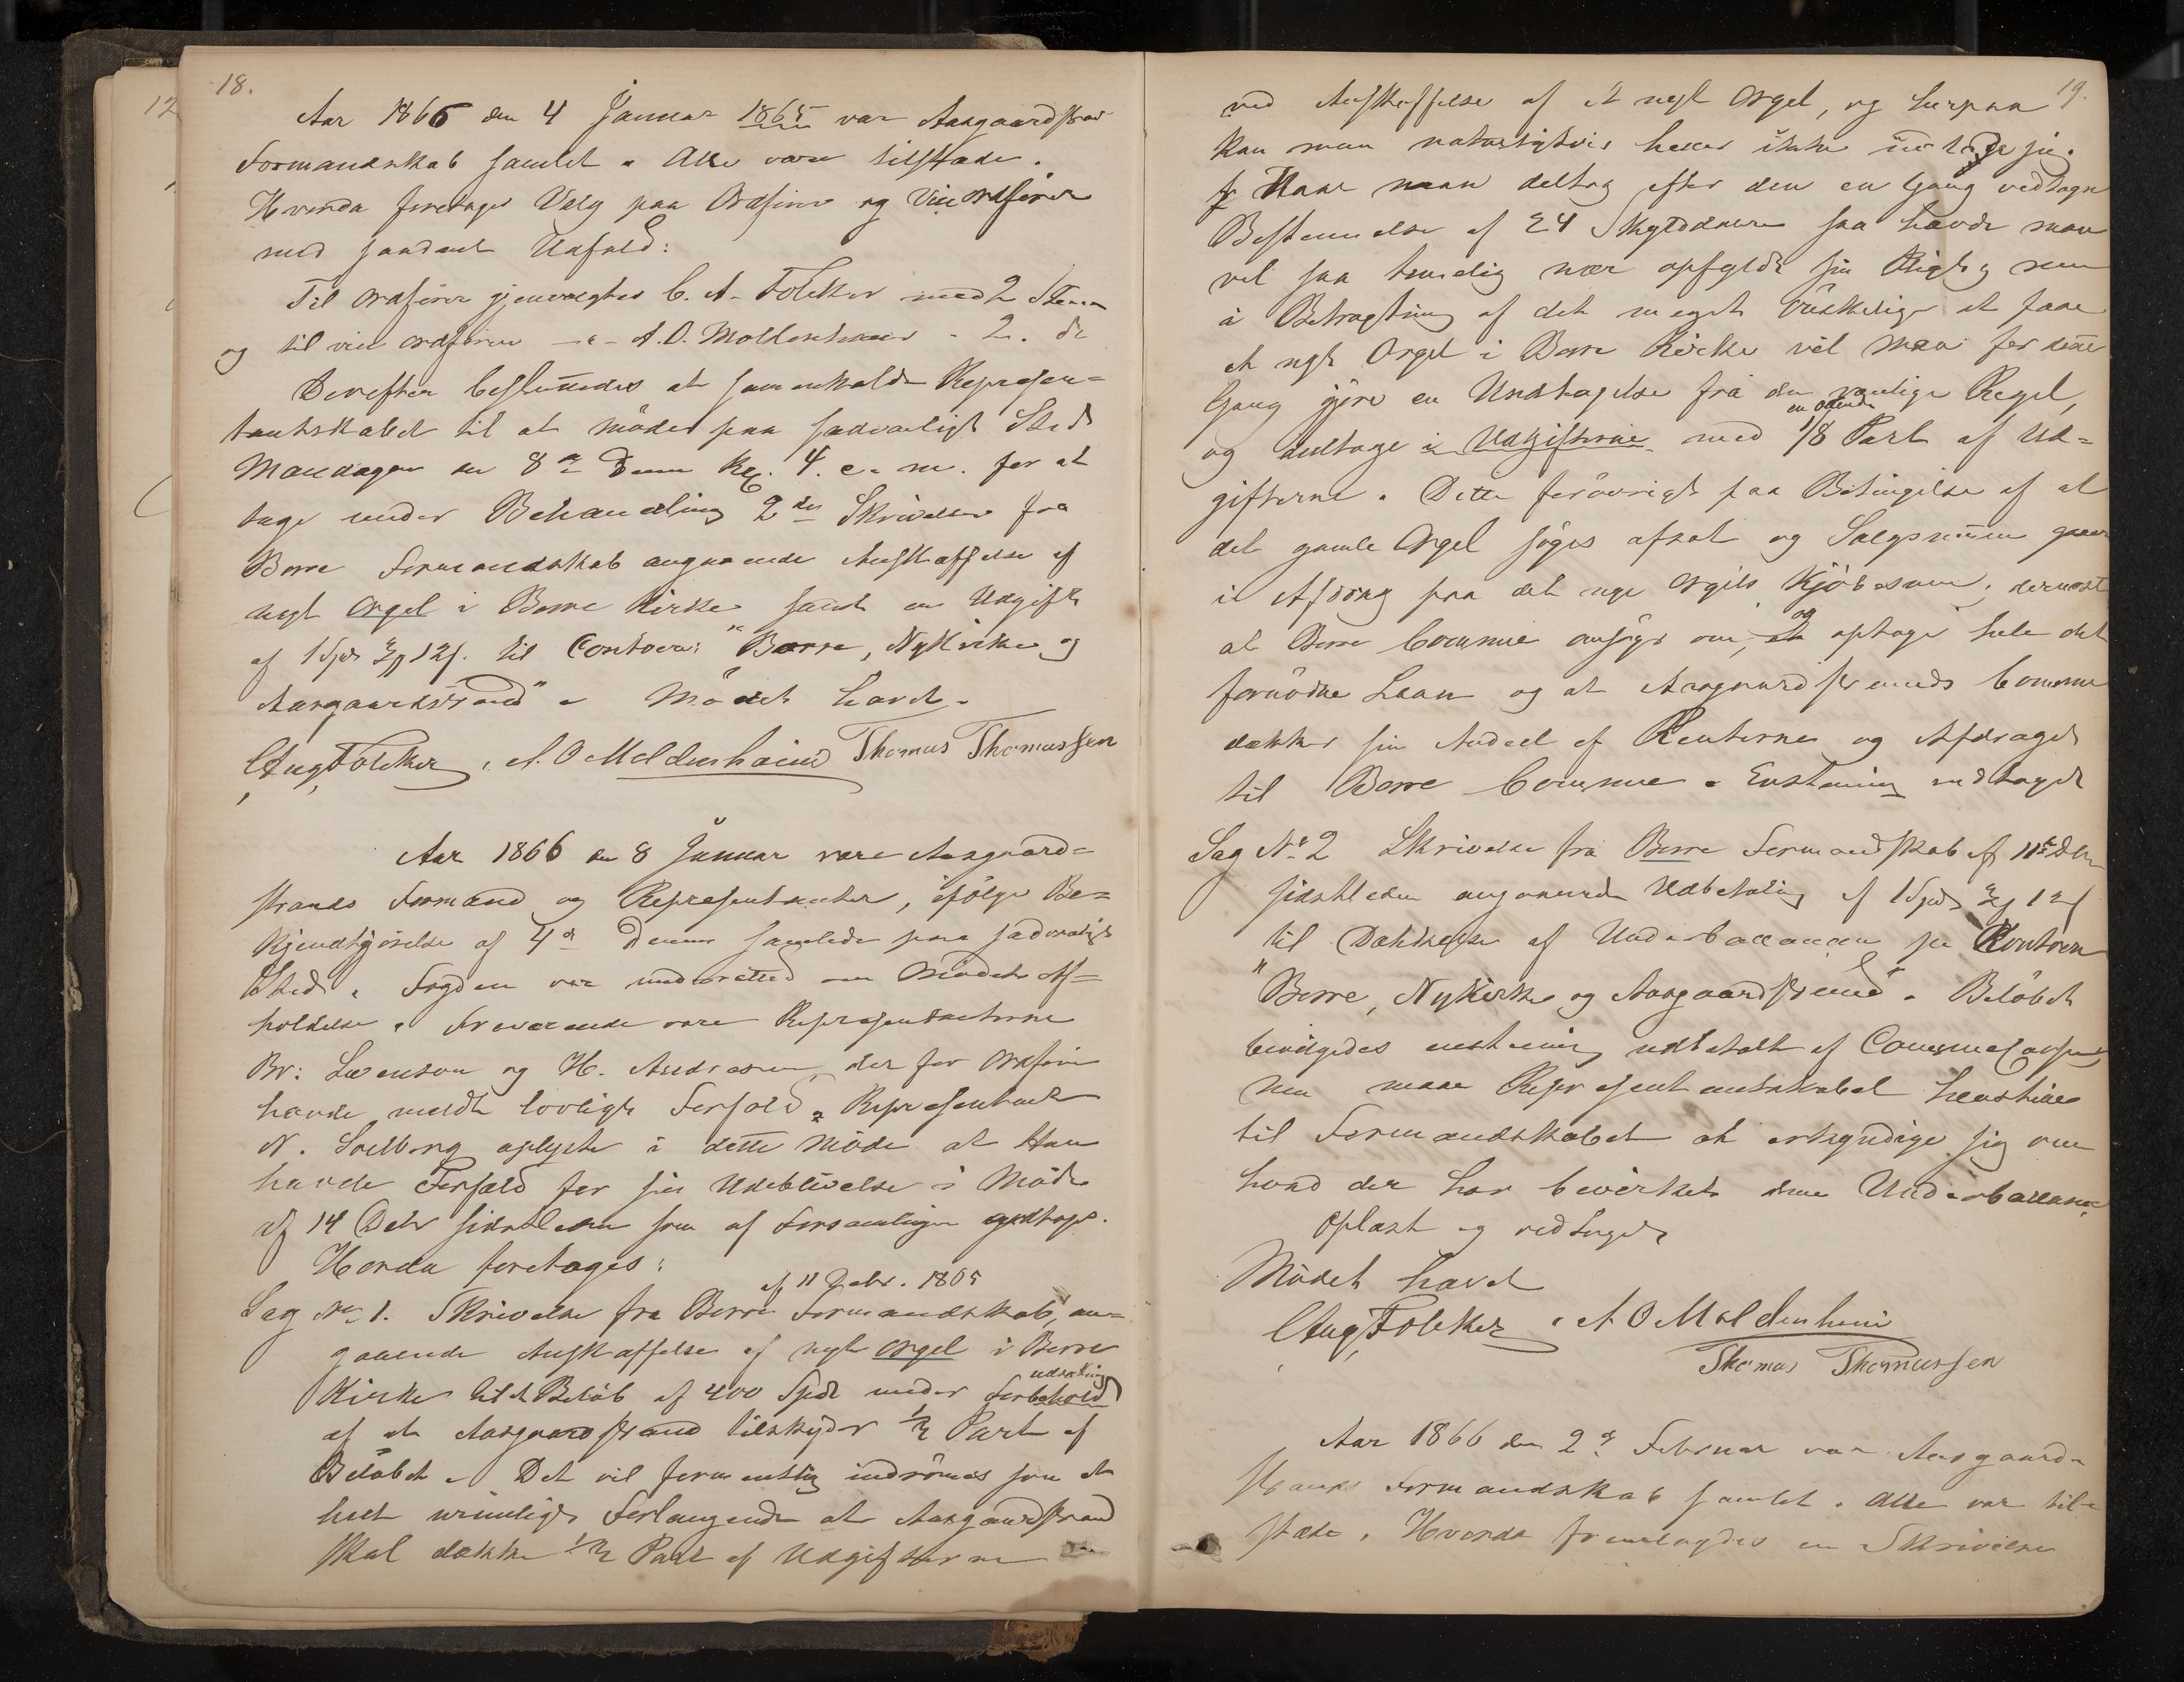 18.
Aar 1866 den 4 Januar 1865 var Aasgaardstrands
Formandskab samlet. Alle vare tilstæde.
Hvorda foretoges Valg paa Ordfører og Viceordfører
med saadant Udfald:
Til Ordfører gjenvalgtes C. A. Foleker med 2 Stem
og til vice ordfører -"- A. O. Moldenhauer - 2. do
Derefter besluttedes at sammenkalde Represen=
tantskabet til at møde paa sædvanligt Sted
Mandagen den 8de Dennes Kl. 4. e. m. for at
tage under Behandling 2de Skrivelser fra
Borre Formandskab angaaende Anskaffelse af
nyt Orgel i Borre Kirke samt en Udgift
af 1 Spd 12 s. til Contoen: "Borre, Nykirke og
Aasgaardstrand". Mødet hævet.
C Aug. Foleker, A. O Moldenhauer Thomas Thomassen
Aar 1866 den 8 Januar vare Aasgaard=
strands Formænd og Representanter, ifølge Be=
kjendtgjørelse af 4de Dennes samlede paa sædvanligt
Sted. Fogden var underrettet om Mødets Af=
holdelse. Fraværende vare Representanterne
Br: Svenson og H. Andresen der for Ordføreren
havde meldt lovligt Forfald. Representant
N. Solberg oplyste i dette Møde at Han
havde Forfald for sin Udeblivelse i Møde
af 14 Decbr sidstleden som af Forsamlingen godtoges.
Hvorda foretoges:
af 11 Decbr. 1865
Sag No 1. Skrivelse fra Borre Formandskab, an=
gaaende Anskaffelse af nyt Orgel i Borre
Kirke til et Beløb af 400 Spd under Forbehold
af at Aasgaardstrand tilskyder 1/2 Part af
Beløbet. Det vil formentlig indrømmes som et
heelt urimeligt Forlangende at Aasgaardstrand
skal dække 1/2 Part af Udgifterne
19.
ved Anskaffelse af et nyt Orgel, og herpaa
kan man naturligvis heller ikke indlade sig.
Naar man deltog efter den en Gang vedtagne
Bestemmelse af 24 Skylddaler saa havde man
vel saa temmelig nær opfyldt sin Pligt, men
i Betragtning af det meget ønskelige at faae
et nyt Orgel i Borre Kirke vil man for denne
Gang gjøre en Undtagelse fra den vanlige Regel,
en ottende
og deeltage i Udgifterne med 1/8 Part af Ud=
gifterne. Dette forøvrigt paa Betingelse af at
det gamle Orgel søges afsat og Salgsummen gaaer
i Afdrag paa det nye Orgels Kjøbesum; dernæst
og
at Borre Commune ansøger om, at optage hele det
fornødne Laan og at Aasgaardstrands Commune
dækker sin Andeel af Renterne og Afdraget
til Borre Commune. Enstemmig vedtaget
Sag No 2 Skrivelse fra Borre Formandskab af 11te Decbr
sidstleden angaaende Udbetaling af 1 Spd 12 s
til Dækkelse af Underballancen paa Kontoen
"Borre, Nykirke og Aasgaardstrand". Beløbet
bevilgedes enstemmig udbetalt af Communecassen,
men maae Representantskabet henstille
til Formandskabet at erkyndige sig om
hvad der har bevirket denne Underballance.
Oplæst og vedtaget
Mødet hævet
C Aug. Foleker, A O Moldenhauer
Thomas Thomassen
Aar 1866 den 2den Februar var Aasgaard=
strands Formandskab samlet. Alle var til=
stæde. Hvorda fremlagdes en Skrivelse